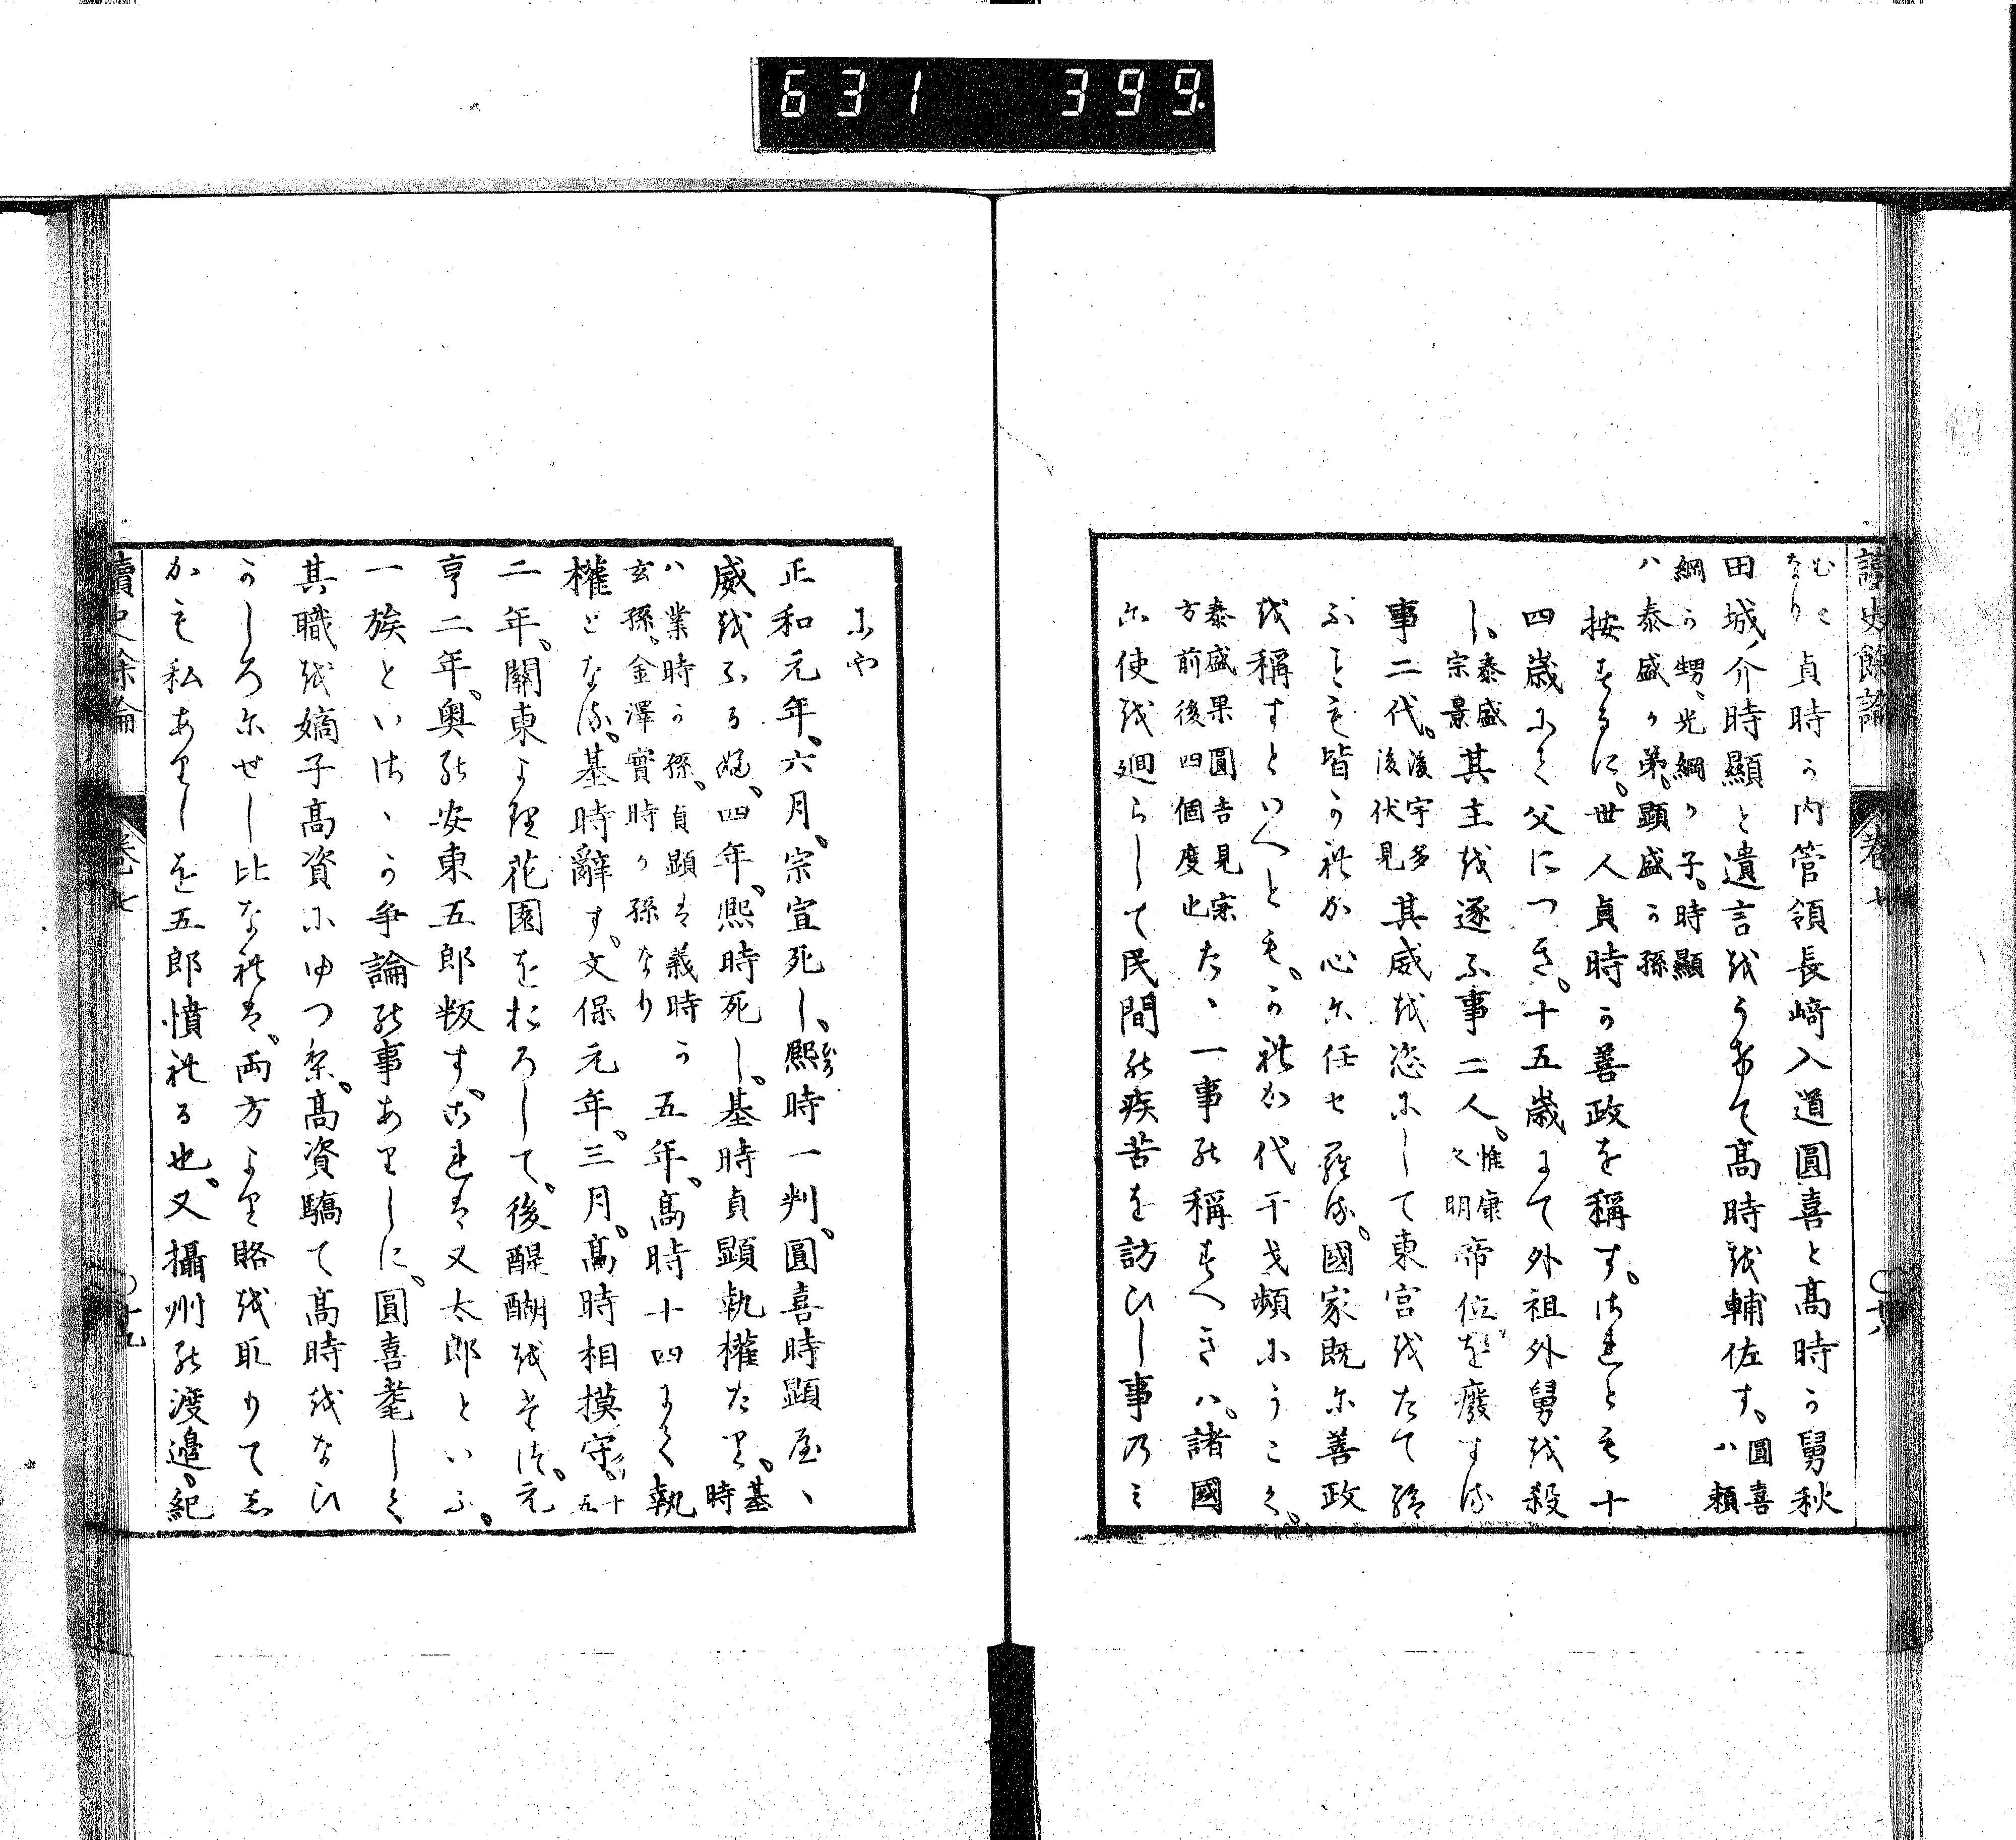 631 399
讀史餘論 卷七 ○十八
むこなり 貞時か内管領長﨑入道圓喜と高時か舅秋
田城介時顯と遺言をうけて高時を輔佐す。圓喜ハ頼
綱か甥、光綱か子。時顯
ハ泰盛か弟、顯盛か孫
按するに。世人貞時か善政を稱す。されとも十
四歳にて父につき。十五歳にて外祖外舅を殺
し、泰盛宗景其主を逐ふ事二人。惟康久明帝位を廢する
事二代。後宇多後伏見其威を恣にして東宮をたて給
ふことも皆かれか心に任せらる。國家既に善政
を稱すといへとも。かれか代干戈頻にうこく。
泰盛果圓吉見宗方前後四個度也たゝ一事の稱すへきハ。諸國
に使を廻らして民間の疾苦を訪ひし事のミ
にや
正和元年。六月。宗宣死し、熙時一判。圓喜時顯屋、
威をふる始。四年。熙時死し。基時貞顯執權たり。基時
ハ業時か孫。貞顯は義時か
玄孫。金澤實時か孫なり
五年。高時十四にて執
權となる。基時辭す。文保元年。三月。高時相摸守。十五
二年。關東より花園をおろして。後醍醐を立つ。元
亨二年。奥の安東五郎叛す。これは又太郎といふ。
一族といさゝか争論の事ありしに。圓喜耄して
其職を嫡子高資にゆつる。高資驕て高時をなひ
かしろにせし比なれは。両方より賂を取りてし
かも私ありしを五郎憤れる也。又攝州の渡邉。紀
讀史餘論 卷七 ○十九